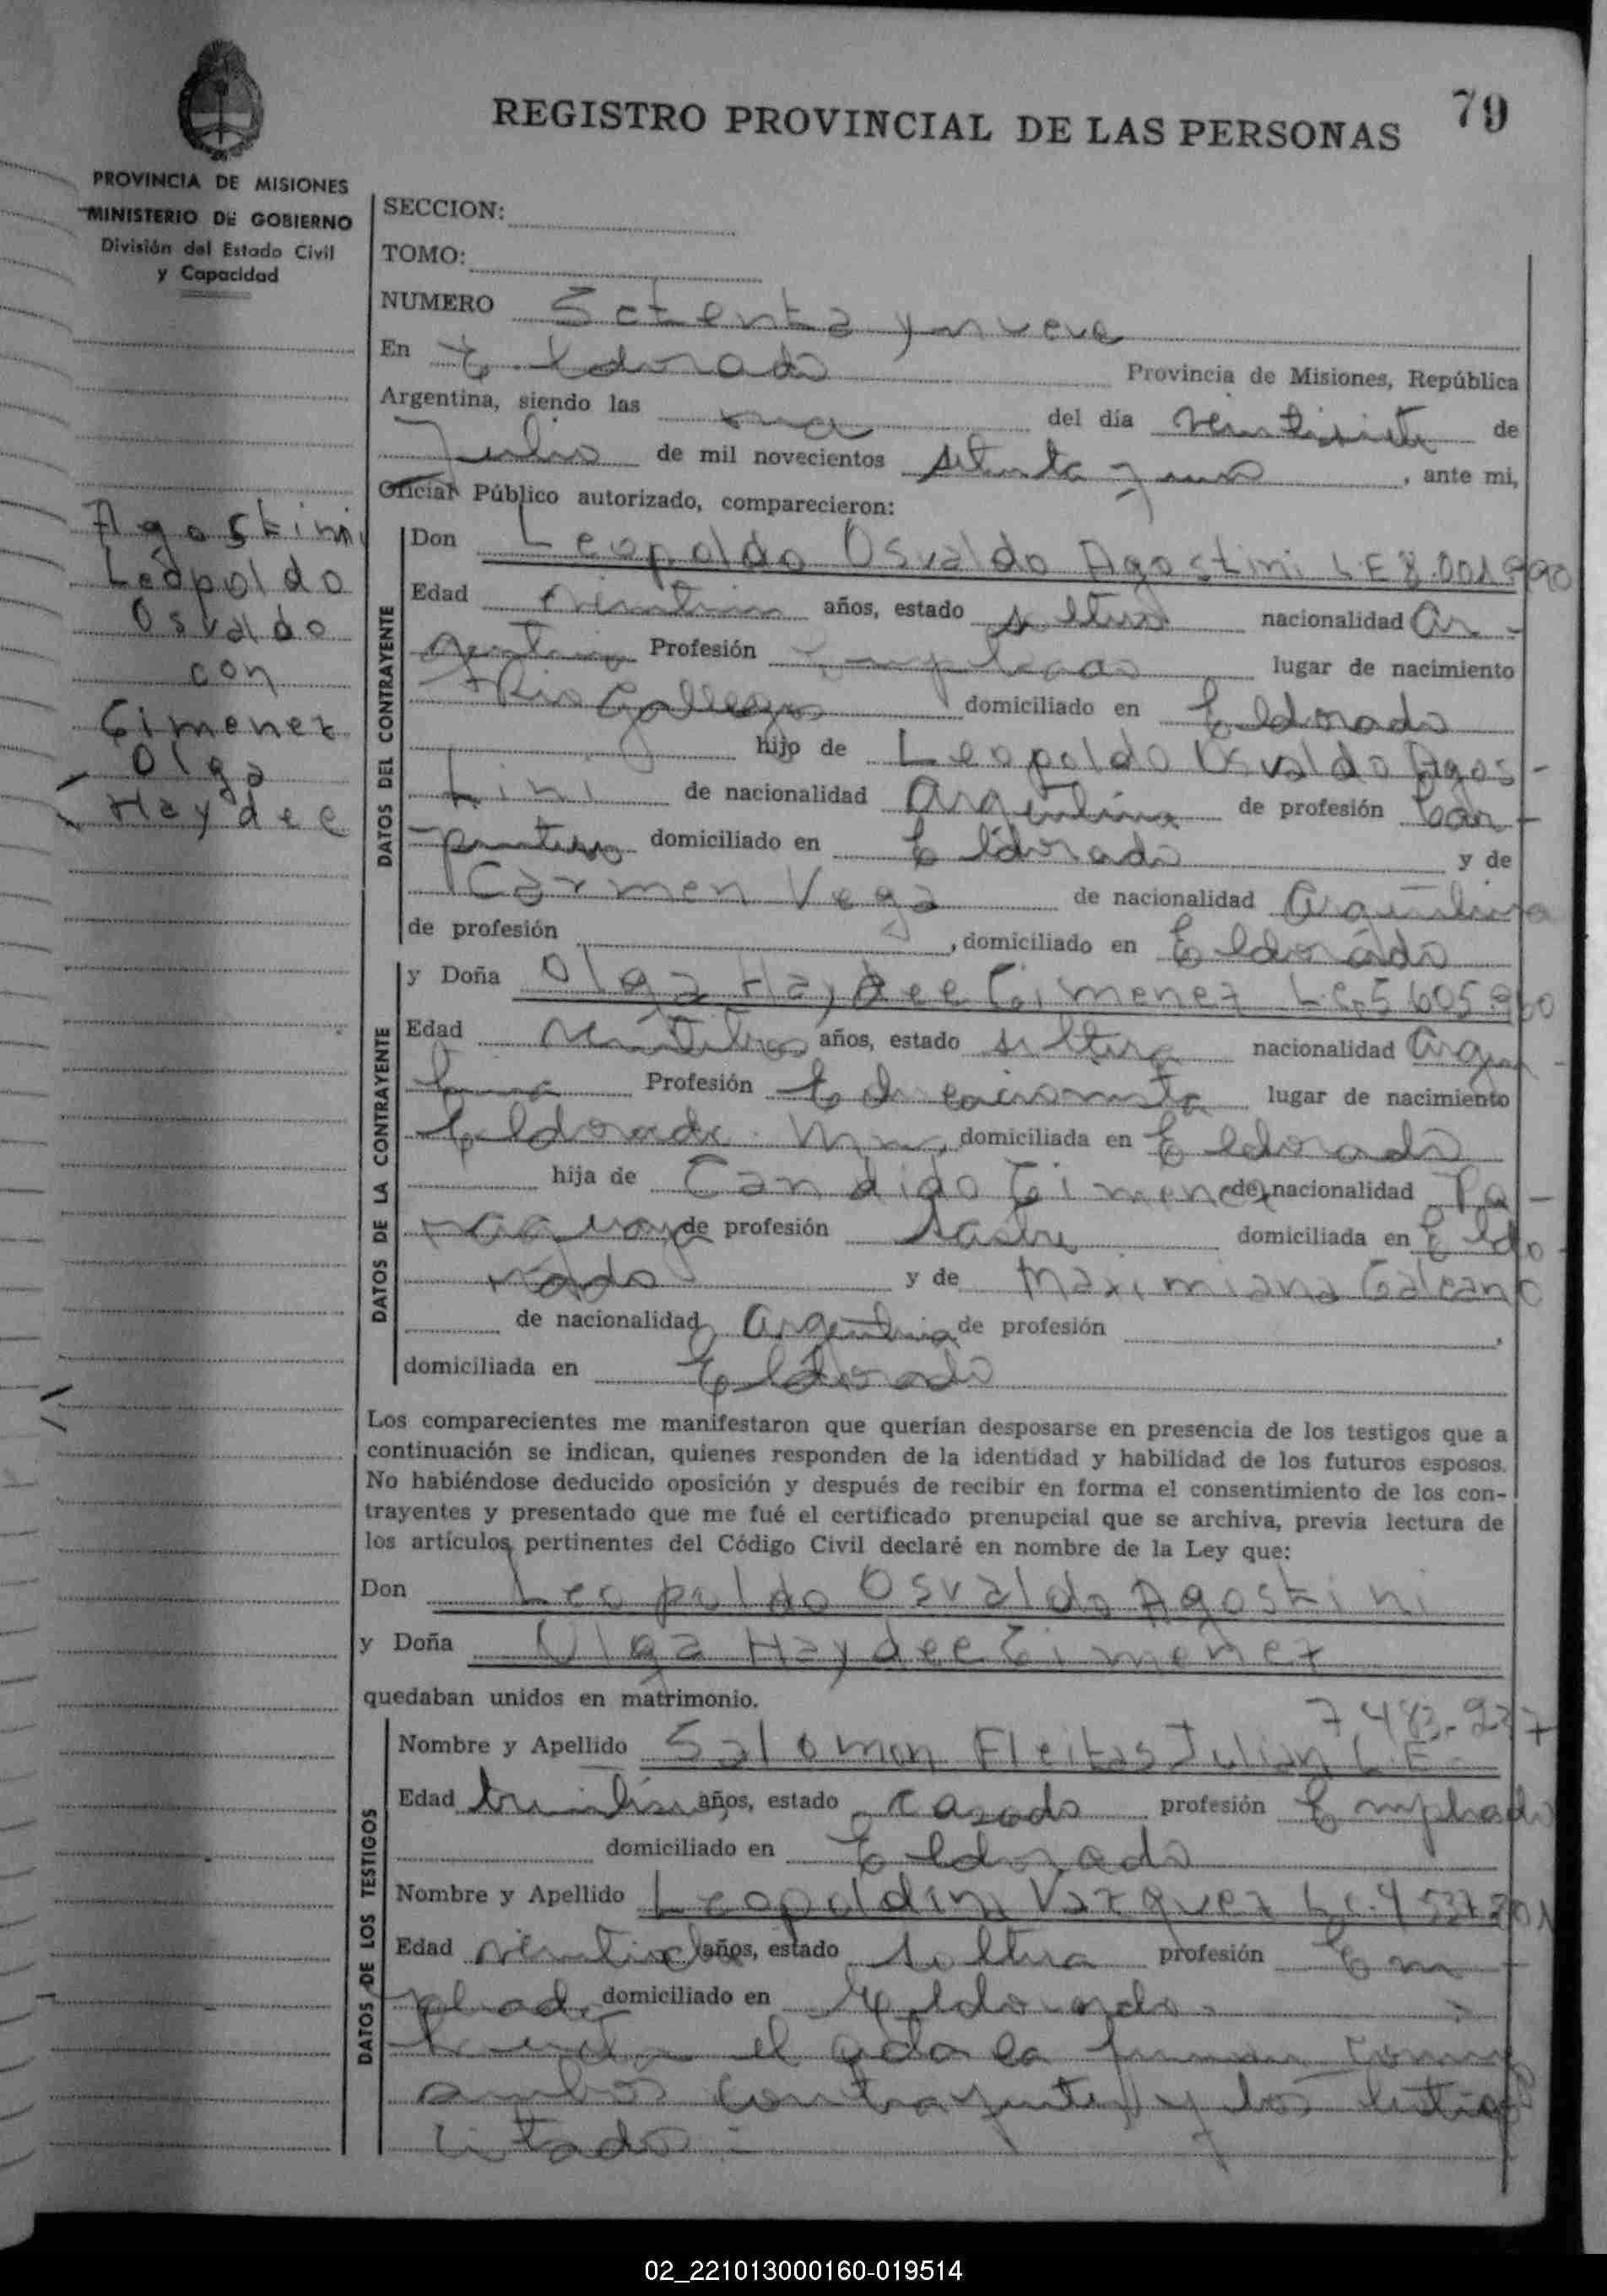 79
REGISTRO PROVINCIAL DE LAS PERSONAS
PROVINCIA DE MISIONES
MINISTERIO DE GOBIERNO
División del Estado Civil
y Capacidad
SECCION:
TOMO:
NUMERO Setenta y nueve
En Eldorado Provincia de Misiones, República
Argentina, siendo las once del día veintisiete de
Julio de mil novecientos setenta y uno, ante mi,
Oficial Público autorizado, comparecieron:
Agostini
Leopoldo
Osvaldo
con
Gimenez
Olga
Haydee
DATOS DEL CONTRAYENTE
Don Leopoldo Osvaldo Agostini L E 8.001.990
Edad años, estado soltero nacionalidad Ar-
gentino Profesión Empleado lugar de nacimiento
Rio Gallegos domiciliado en Eldorado
hijo de Leopoldo Osvaldo Agos-
tini de nacionalidad Argentina de profesión Car-
pintero domiciliado en Eldorado y de
Carmen Vega de nacionalidad Argentina
de profesión , domiciliado en Eldorado
DATOS DE LA CONTRAYENTE
y Doña Olga Haydee Gimenez L.C. 5 605.960
Edad veintitres años, estado soltera nacionalidad Argen-
tina Profesión lugar de nacimiento
Eldorado Mnes, domiciliada en Eldorado
hija de Candido Gimenez de nacionalidad Pa-
raguayo de profesión sastre domiciliada en Eldo-
rado y de Maximiana Galeano
de nacionalidad Argentina de profesión ,
domiciliada en Eldorado
Los comparecientes me manifestaron que querían desposarse en presencia de los testigos que a
continuación se indican, quienes responden de la identidad y habilidad de los futuros esposos.
No habiéndose deducido oposición y después de recibir en forma el consentimiento de los con-
trayentes y presentado que me fué el certificado prenupcial que se archiva, previa lectura de
los artículos pertinentes del Código Civil declaré en nombre de la Ley que:
Don Leopoldo Osvaldo Agostini
y Doña Olga Haydee Gimenez
quedaban unidos en matrimonio.
DATOS DE LOS TESTIGOS
7 483.927
Nombre y Apellido Salomon Fleitas Julian L.E.
Edad años, estado casado profesión Empleado
domiciliado en Eldorado
Nombre y Apellido Leopoldina Vazquez L.C. 4 537 801
Edad veintiocho años, estado soltera profesión Em-
pleada domiciliado en Eldorado.
el acta la firman conmigo
ambos contrayentes y los testigos
citados.-
02_221013000160-019514